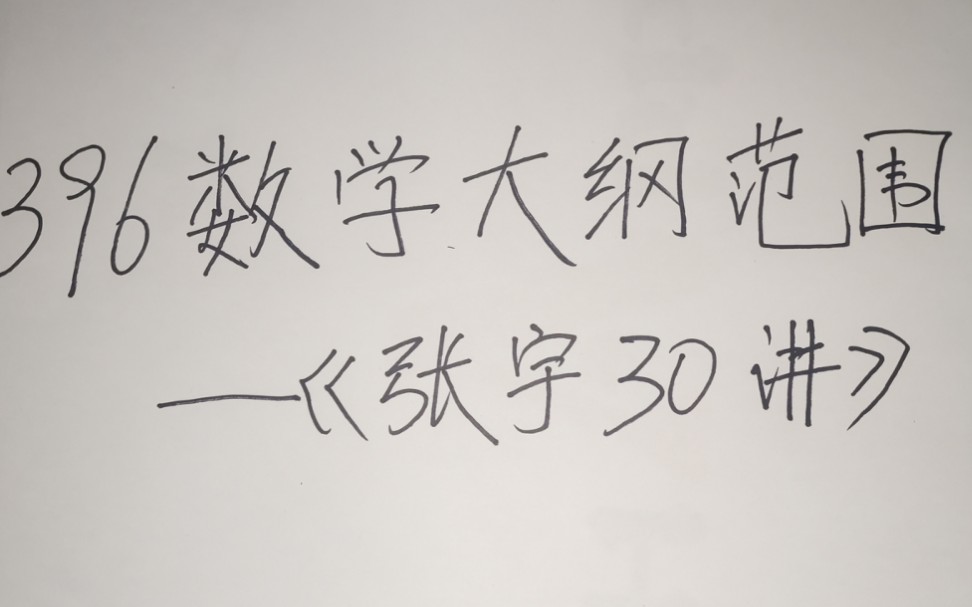 396数学大纲范围
—《张宇30讲》